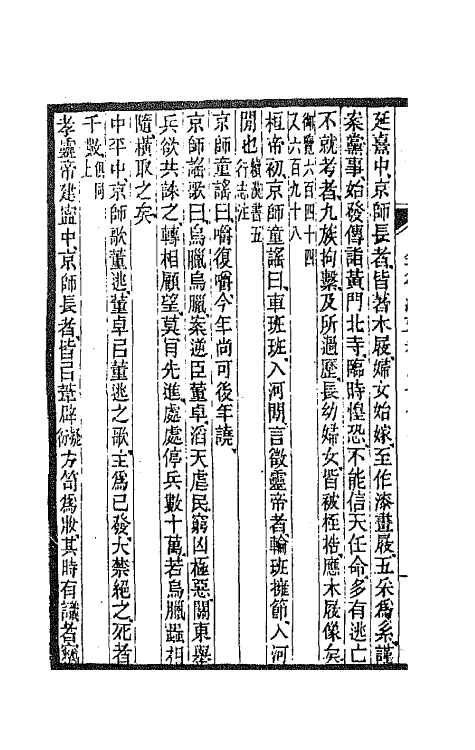 延熹中京師長者皆著木屐婦女始嫁至作漆畫屐五采爲系謹
案黨事始發傳詣黃門北寺臨時惶恐不能信天任命多有逃亡
不就考者九族拘繫及所過歷長幼婦女皆被桎梏應木屐像矣
御覽六百四十四
又六百九十八
桓帝初京師童謠曰車班班入河閒言徵靈帝者輪班擁節入河
閒也續漢書五
行志注
京師童謠曰嚼復嚼今年尚可後年譊
京師謠歌曰烏臘烏臘案逆臣董卓滔天虐民窮凶極惡關東舉
兵欲共誅之轉相顧望莫肯先進處處停兵數十萬若烏臘蟲相
隨橫取之矣
中平中京師歌董逃董卓㠯董逃之歌主爲己發大禁絕之死者
千數俱同
上
孝靈帝建寧中京師長者皆㠯葦辟疑
衍方笥爲妝其時有議者竊